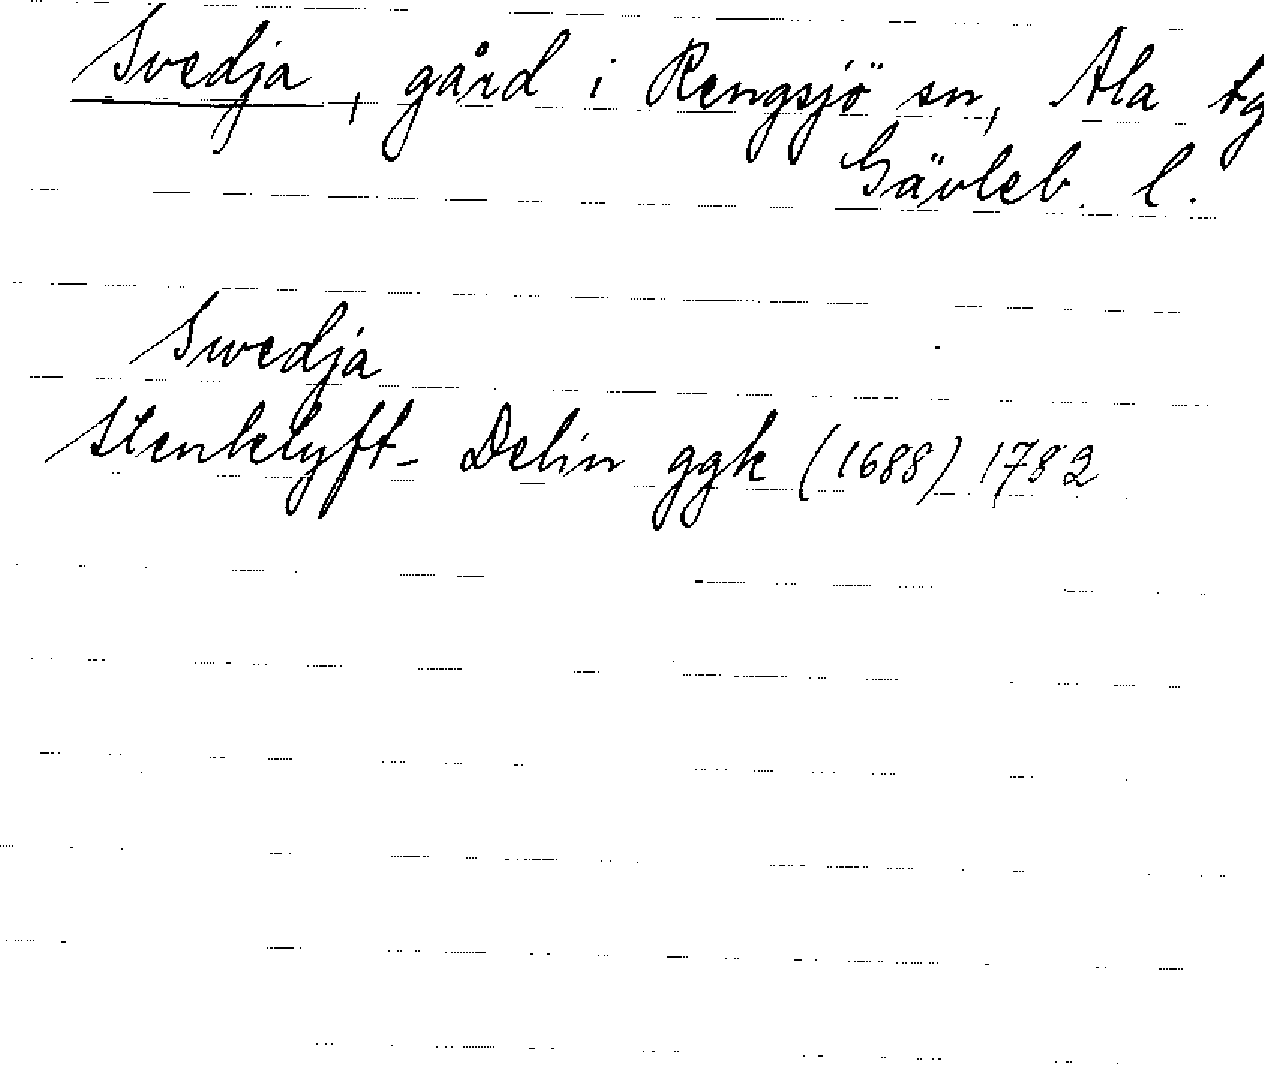 Svedja, gård i Rengsjö sn, Ala tg
Gävleb. l.
Swedja
Stenklyft-Delin ggk (1688) 1782